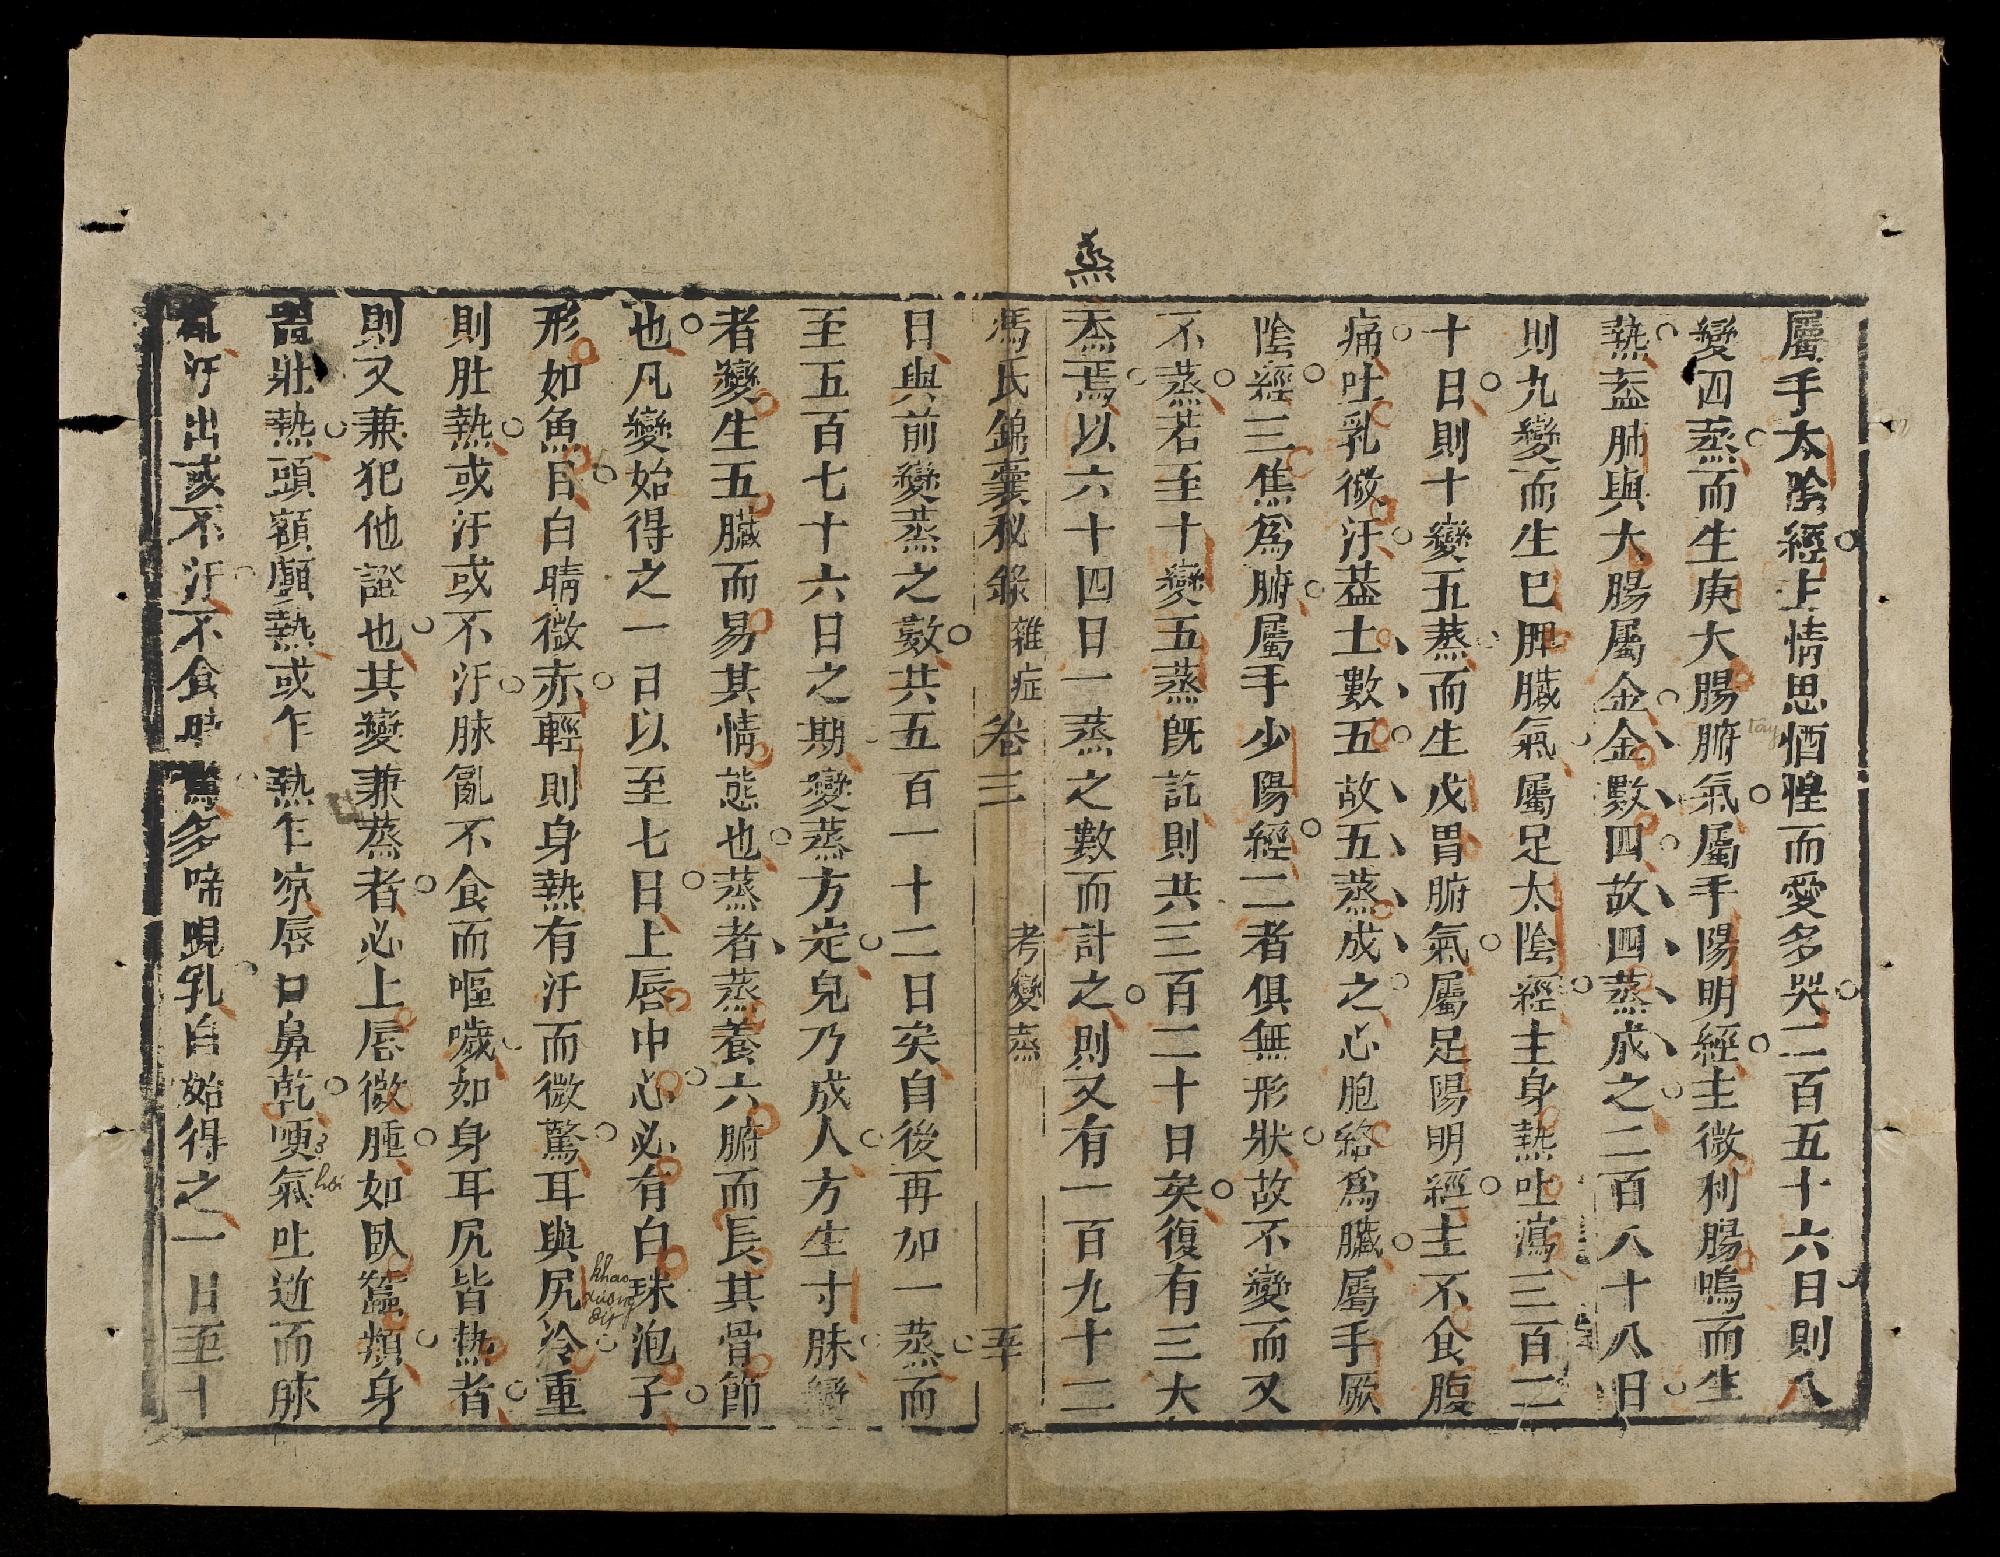 屬手太陰經上情思悟惶而愛多哭二百五十六日則八
變四蒸而生庚大腸腑氣屬手陽明經主微利腸鳴而生
熱盖肺與大腸屬金金數四故四蒸成之二百八十八日
則九變而生巳脾臓氣屬足太陰經主身熱吐瀉三百二
十日則十變五蒸而生戊胃腑氣屬足陽明經主不食腹
痛吐乳微汗盖土數五故五蒸成之心胞絡爲臓屬手厥
陰經三焦爲腑屬手少陽經二者俱無形狀故不變而又
不蒸若至十變五蒸旣訖則共三百二十日矣復有三大
蒸焉以六十四日一蒸之數而計之則又有一百九十二
蒸
馮氏錦囊秘錄 雜症 卷三 考變蒸
日與前變蒸之數共五百一十二日矣自後再加一蒸而
至五百七十六日之期變蒸方定兒乃成人方生寸脉變
者變生五臓而易其情態也蒸者蒸養六腑而長其骨節
也凡變始得之一日以至七日上唇中心必有白珠泡子
形如魚目白睛微赤輕則身熱有汗而微驚耳與尻冷重
khao
xương
đít
則肚熱或汗或不汗脉亂不食而嘔噦如身耳尻皆熱者
則又兼犯他證也其變兼蒸者必上唇微腫如臥蠶煩身
壯熱頭額顱熱或乍熱乍凉唇口鼻乾哽氣吐逆而脉
hơi
亂汗出或不汗不食時驚多啼睍乳自始得之一日至十
tây